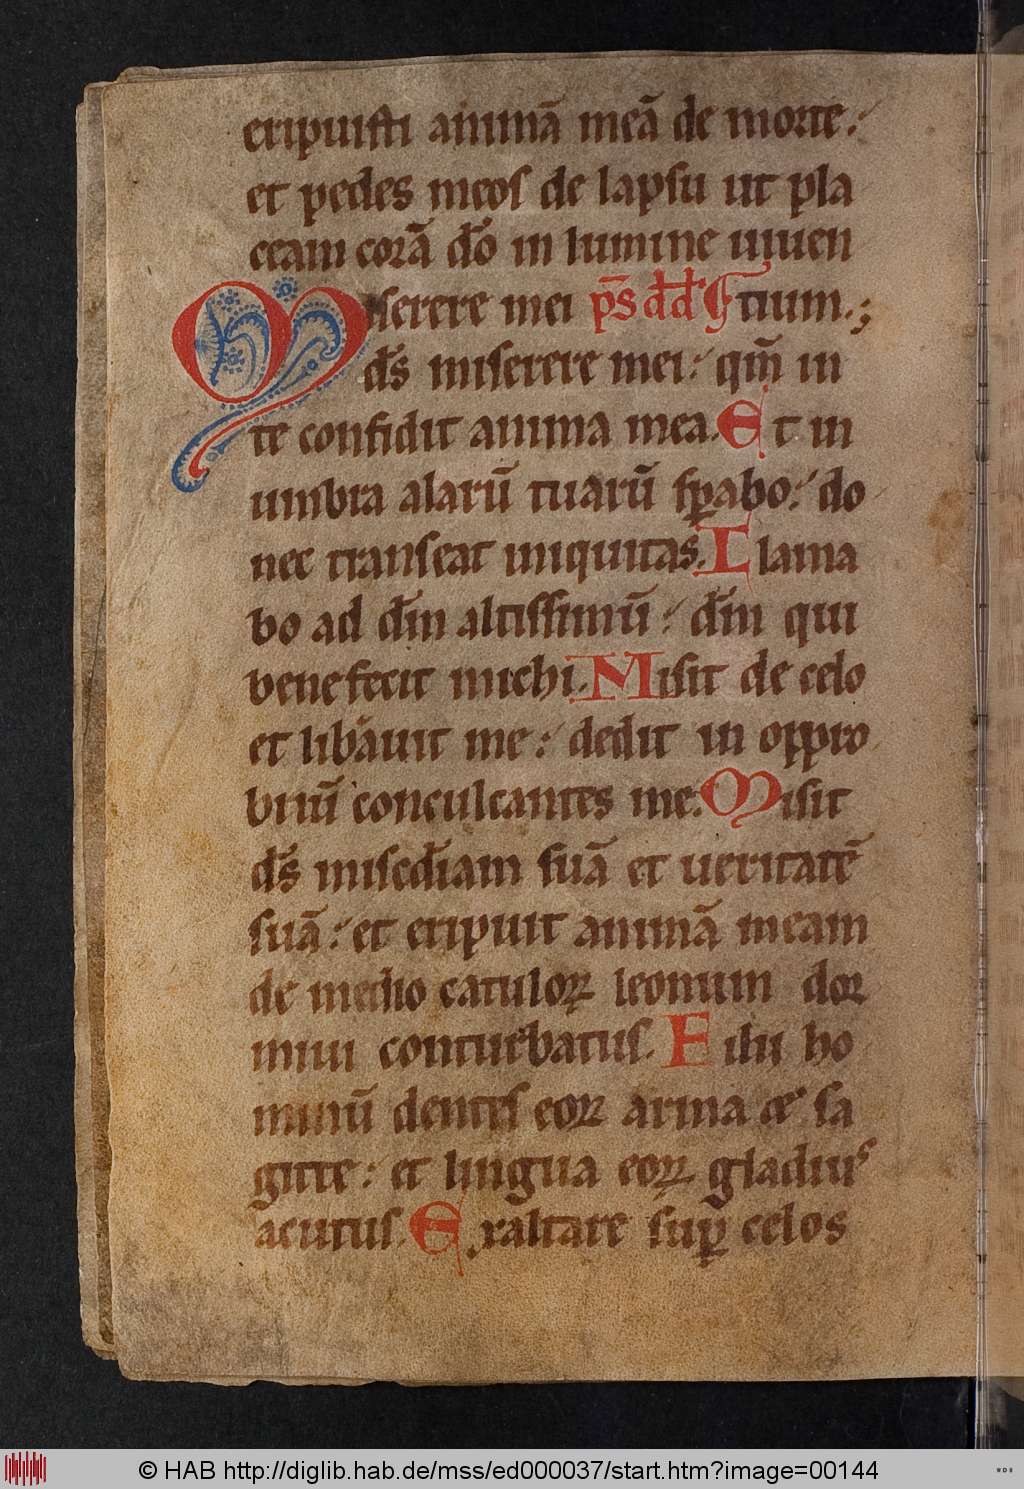 eripuisti animā meā de morte:
et pedes meos de lapsu ut pla
ceam corā dō in lumine uiuen
Miserere mei ps dd tium.;
ds̄ miserere mei: qm̄ in
te confidit anima mea. Et in
umbra alarū tuarū sꝑabo: do
nec transeat iniquitas. Clama
bo ad dm̄ altissimū: dm̄ qui
benefecit michi. Misit de celo
et libauit me: dedit in oppro
briū conculcantes me. Misit
ds̄ misedīam suā et ueritatē
suā: et eripuit animā meam
de medio catuloꝝ leonum dor
miui conturbatus. Filii ho
minū dentes eoꝝ arma et sa
gitte: et lingua eoꝝ gladius
acutus. Exaltare suꝑ celos
© HAB http://diglib.hab.de/mss/ed000037/start.htm?image=00144